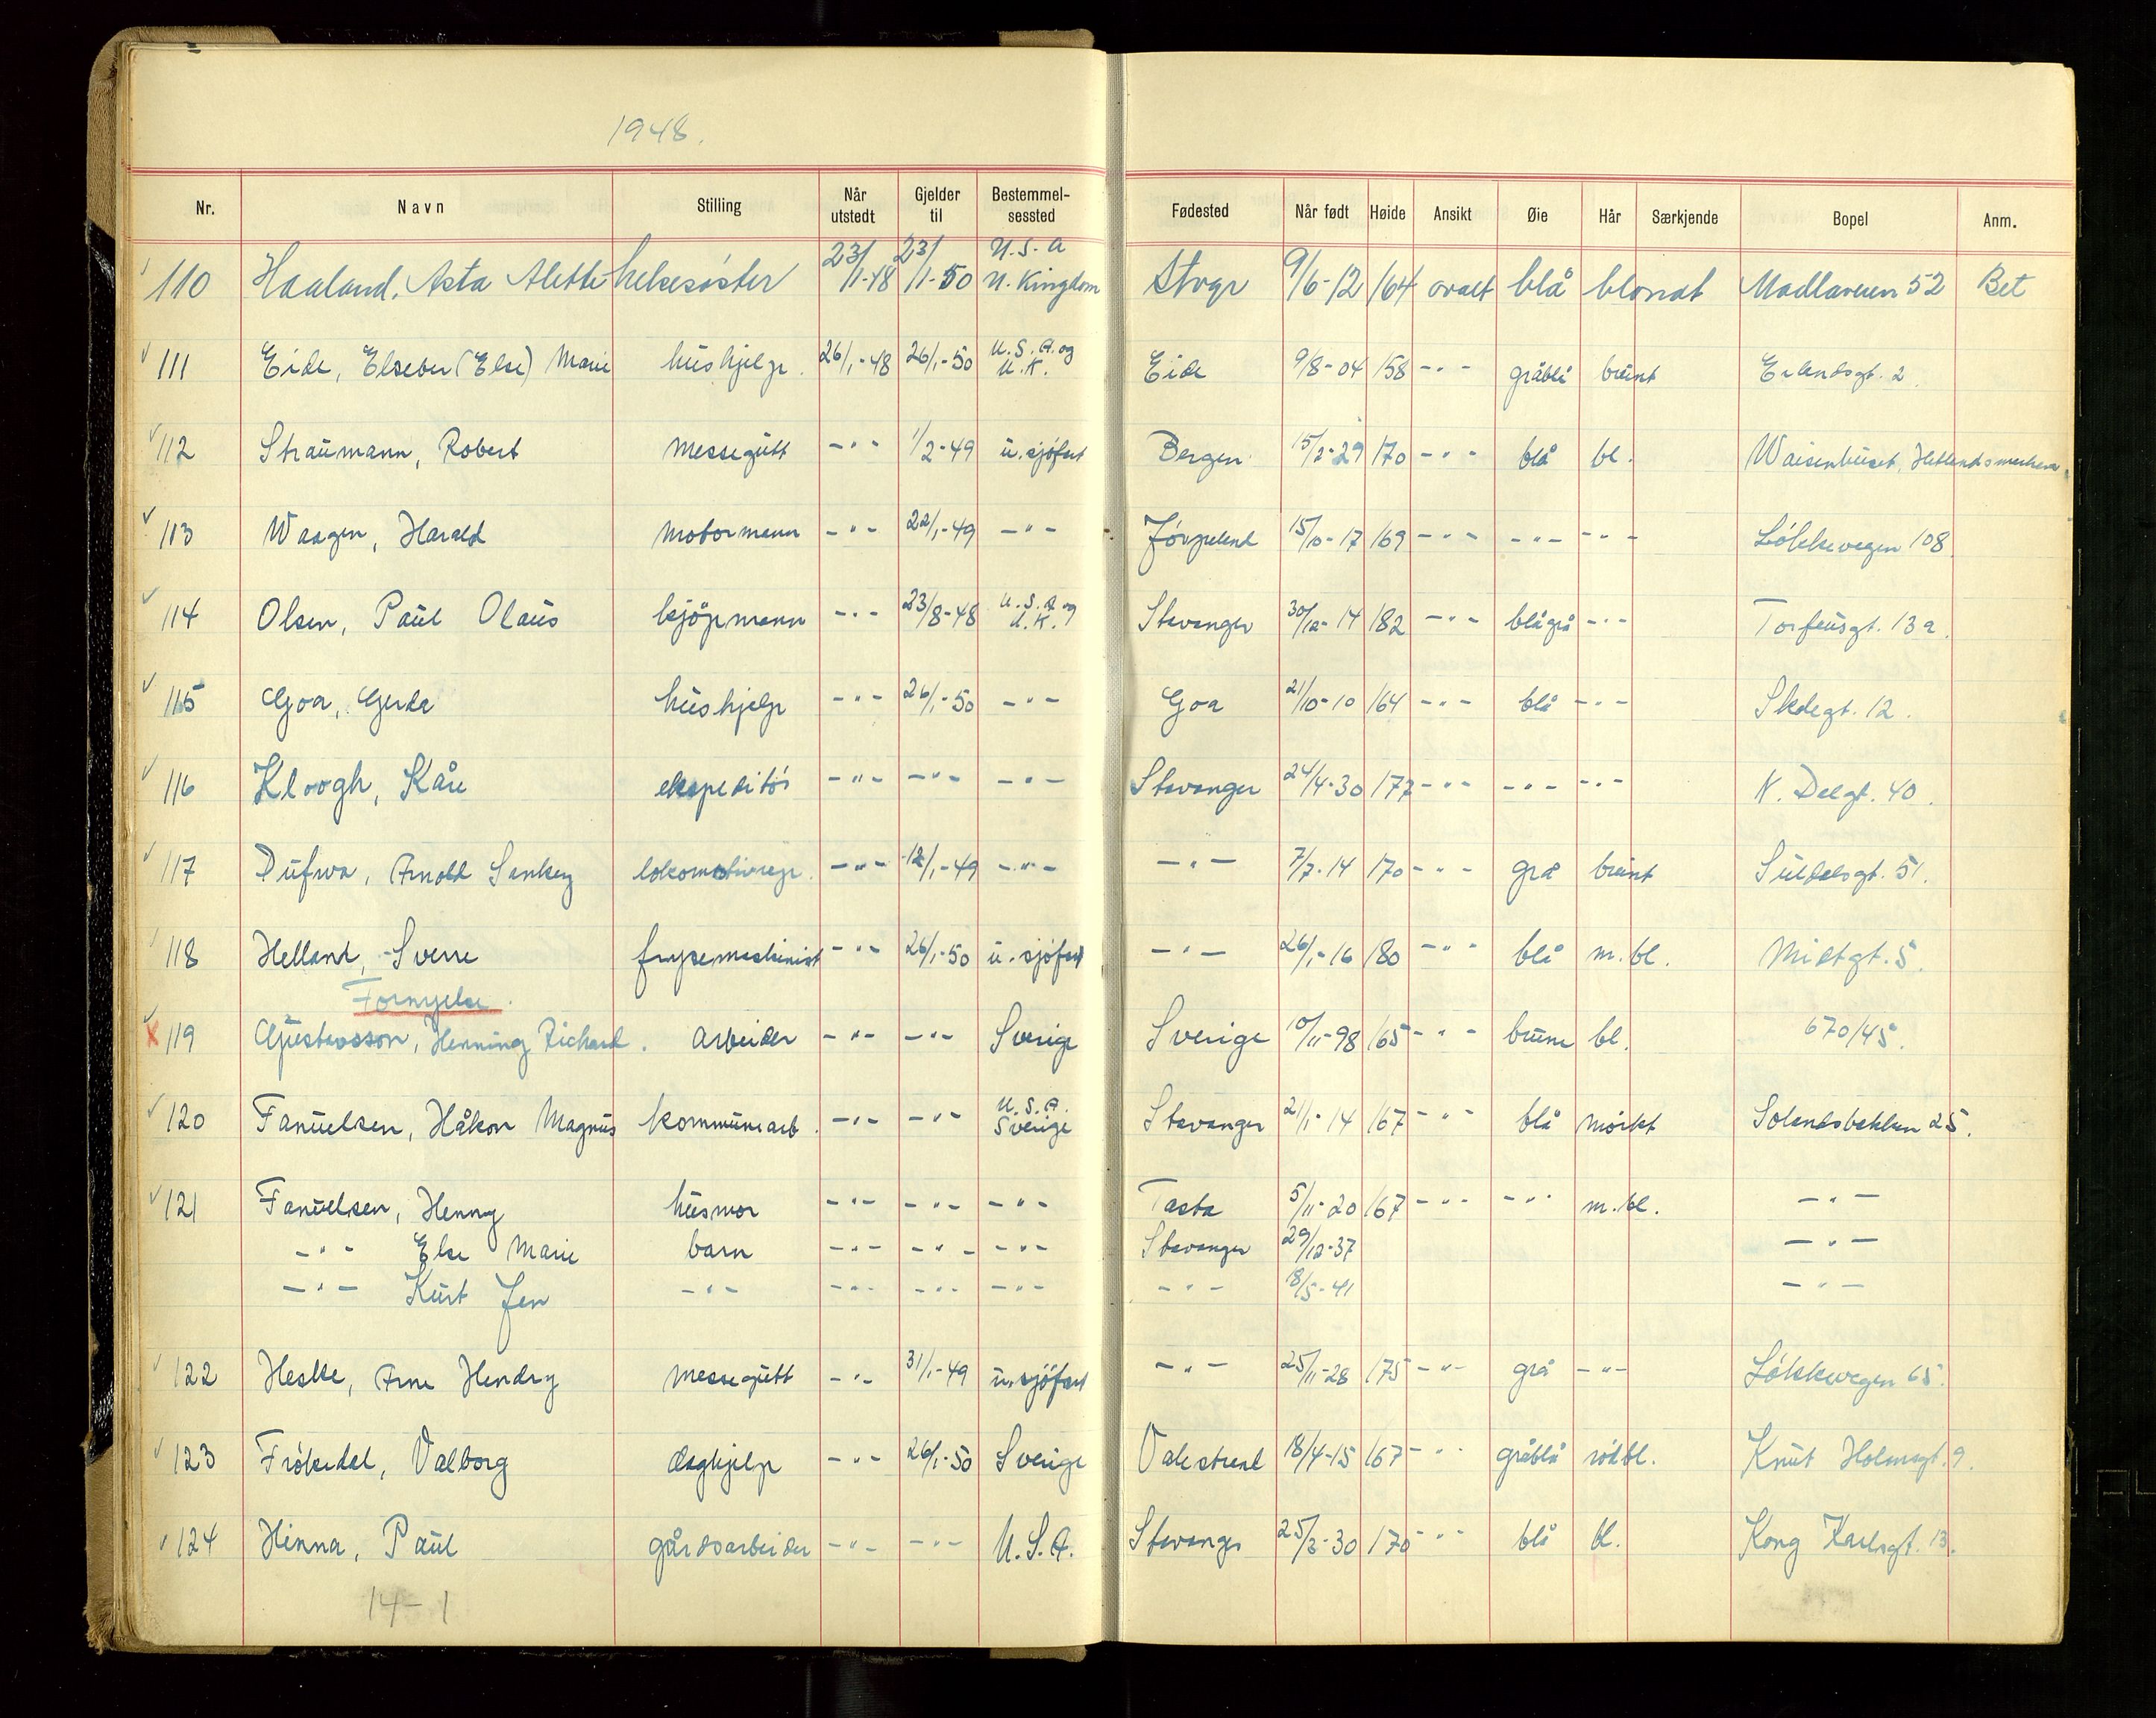 1948.
Nr. Navn Stilling Når utstedt Gjelder til Bestemmelsessted Fødested Når født Høide Ansikt Øie Hår Særkjende Bopel Anm.
110 Haaland, Asta Alette helsesöster 23/1-48 23/1-50 U.S.A U. Kingdom Stvgr 9/6-12 164 ovalt blå blondt Madlaveien 52 Bet
111 Eide, Elseber (Else) Marie hushjelp. 26/1-48 26/1-50 U.S.A. og U.K. Eide 9/8-04 158 -"- gråblå brunt Erlandsgt. 2.
112 Straumann, Robert messegutt -"- 1/2-49 u. sjöfart Bergen 15/2-29 170 -"- blå bl. Waisenhuset, Hetlandsmarken.
113 Waagen, Harald motormann -"- 22/1-49 -"- Jörpeland 15/10-17 169 -"- -"- -"- Lökkevegen 108.
114 Olsen, Paul Olaus kjöpmann -"- 23/8-48 U.S.A og U.K. Stavanger 30/12-14 182 -"- blågrå -"- Torfeusgt. 13a.
115 Goa, Gerda hushjelp -"- 26/1-50 -"- Goa 21/10-10 164 -"- blå -"- 12.
116 Kloogh, Kåre ekspeditör -"- -"- -"- Stavanger 24/4-30 177 -"- -"- -"- N. Dalgt. 40.
117 Dufwa, Arnold Sankey -"- 12/1-49 -"- -"- 7/7-14 170 -"- grå brunt Suldalsgt. 51.
118 Helland, Sverre frysemaskinist -"- 26/1-50 u. sjöfart -"- 26/1-16 180 -"- blå m. bl. Midtgt. 5.
Fornyelse.
X 119 Gustavsson, Henning Richard. arbeider -"- -"- Sverige Sverige 10/11-98 165 -"- brune bl. 670/45.
120 Fanuelsen, Håkon Magnus kommunearb. -"- -"- U.S.A. Sverige Stavanger 21/1-14 167 -"- blå mörkt Solandsbakken 25.
121 Fanuelsen, Henny husmor -"- -"- -"- Tasta 5/11-20 167 -"- -"- m. bl. -"-
-"- Else Marie barn -"- -"- -"- Stavanger 29/12-37 -"-
-"- Kurt Jan -"- -"- -"- -"- -"- 18/5-41 -"-
122 Arne Hendry messegutt -"- 31/1-49 u. sjöfart -"- 25/11-28 175 -"- grå -"- Lökkevegen 65.
123 Frökedal, Valborg daghjelp -"- 26/1-50 Sverige Valestrand 18/4-15 167 -"- gråblå rödbl. Knut Holmsgt. 9.
124 Hinna, Paul gårdsarbeider -"- -"- U.S.A. Stavanger 25/2-30 170 -"- blå bl. Kong Karlsgt. 13.
14-1